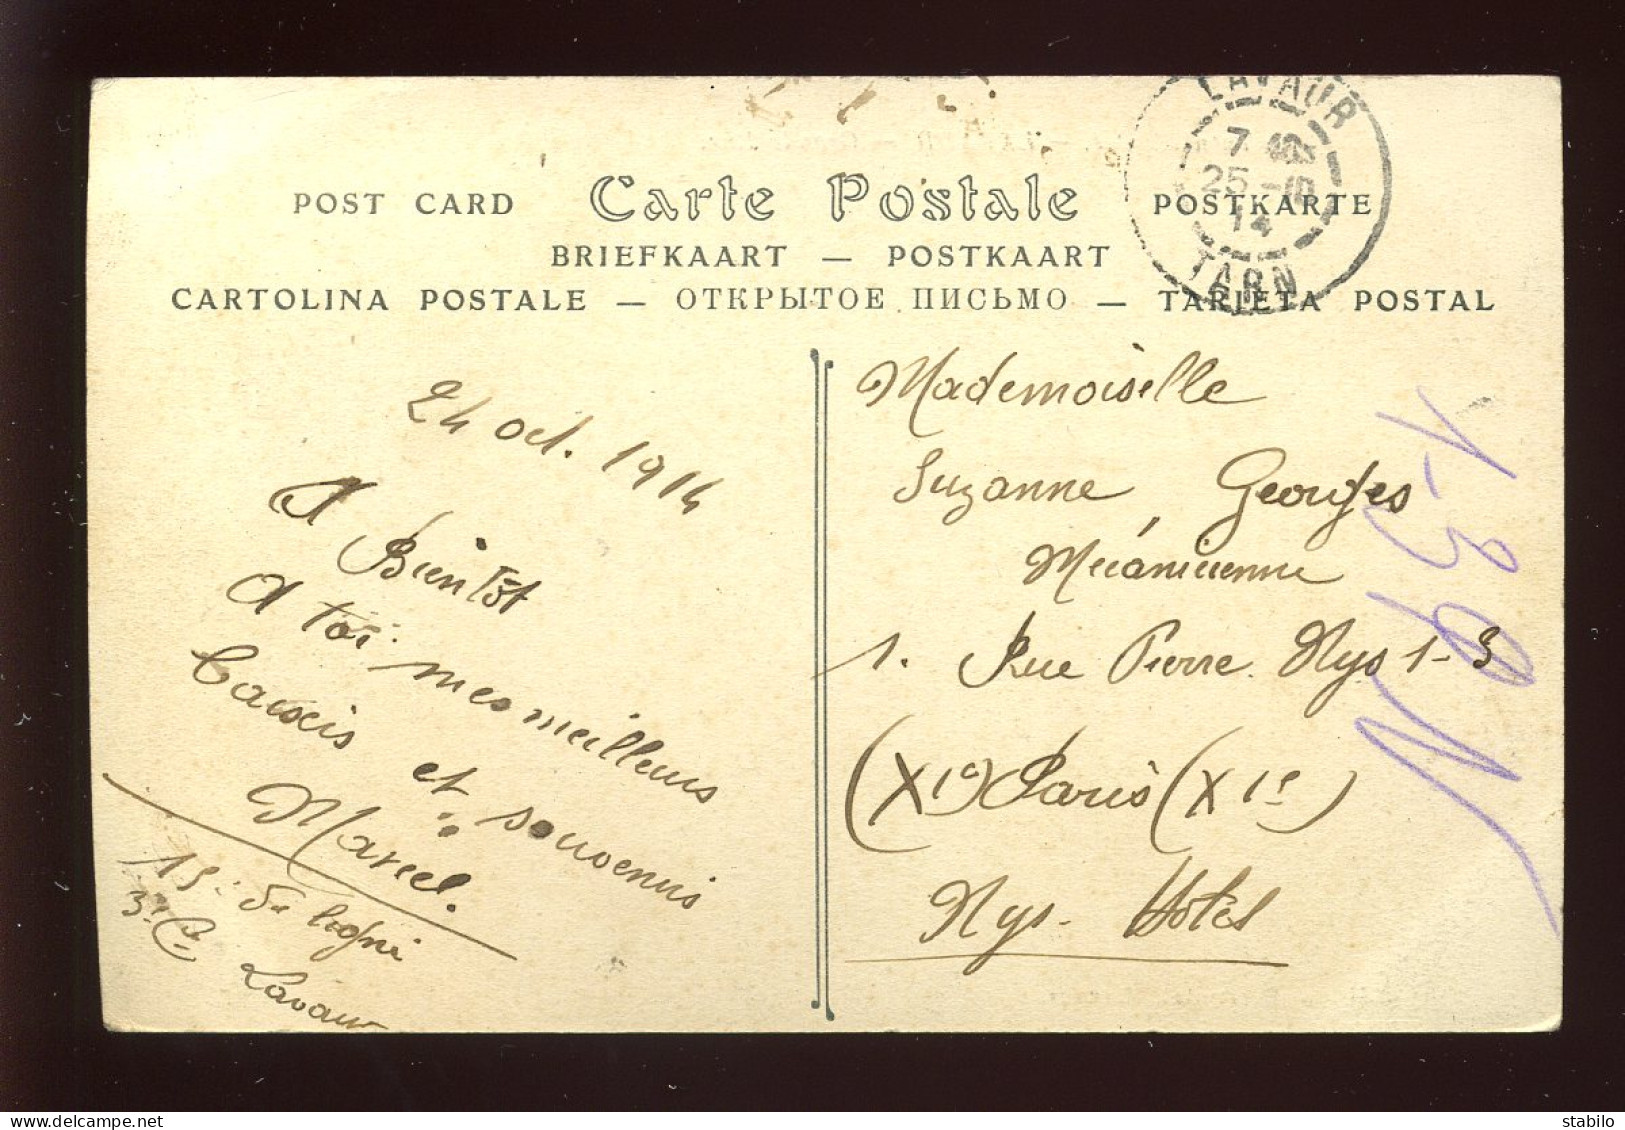 POST CARD Carte Postale POSTKARTE
BRIEFKAART — POSTKAART
CARTOLINA POSTALE — ОТКРЫТОЕ ПИСЬМО — TARJETA POSTAL
LAVAUR
7
25
14
TARN
24 oct. 1914
A Bientôt
A toi mes meilleurs
et souvenirs
Marcel.
15e de ligne
3e Cie Lavaur
Mademoiselle
Suzanne Georges
Mécanicienne
1. Rue Pierre Nys 1-3
(XIe) Paris (XIe)
Nys-Hôtel
1-3
delcampe.net
stabilo